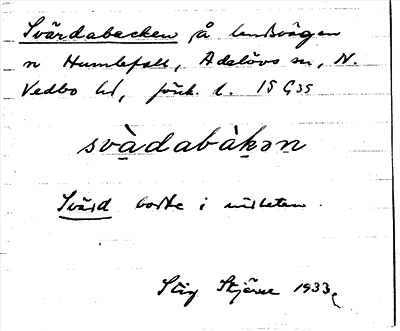 Svärdabacken å landsvägen
n Humlefall, Adelövs sn, N.
Vedbo hd, jönk. l. IS G35
svàdabàkən
Svärd bodde i närheten.
Stig Stjärne 1933